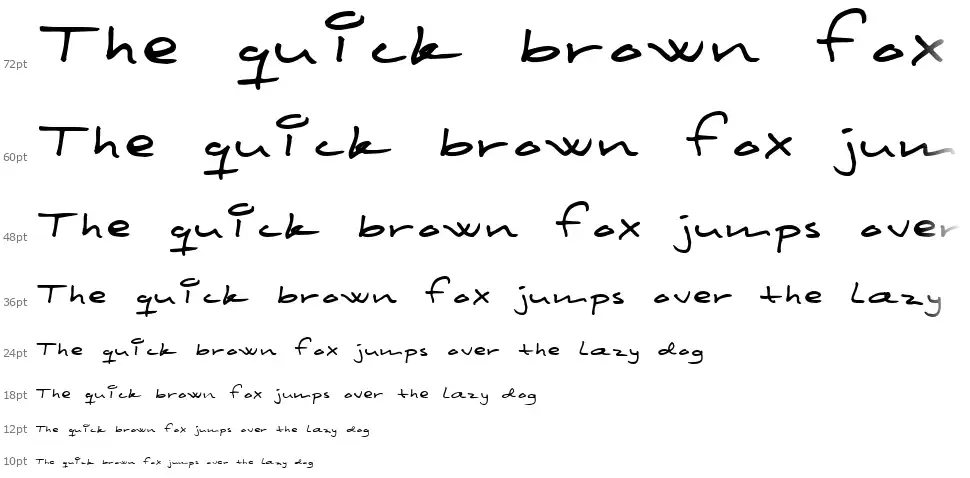 72pt The quick brown fox
60pt The quick brown fox jum
48pt The quick brown fox jumps over
36pt The quick brown fox jumps over the lazy
24pt The quick brown fox jumps over the lazy dog
18pt The quick brown fox jumps over the lazy dog
12pt The quick brown fox jumps over the lazy dog
10pt The quick brown fox jumps over the lazy dog